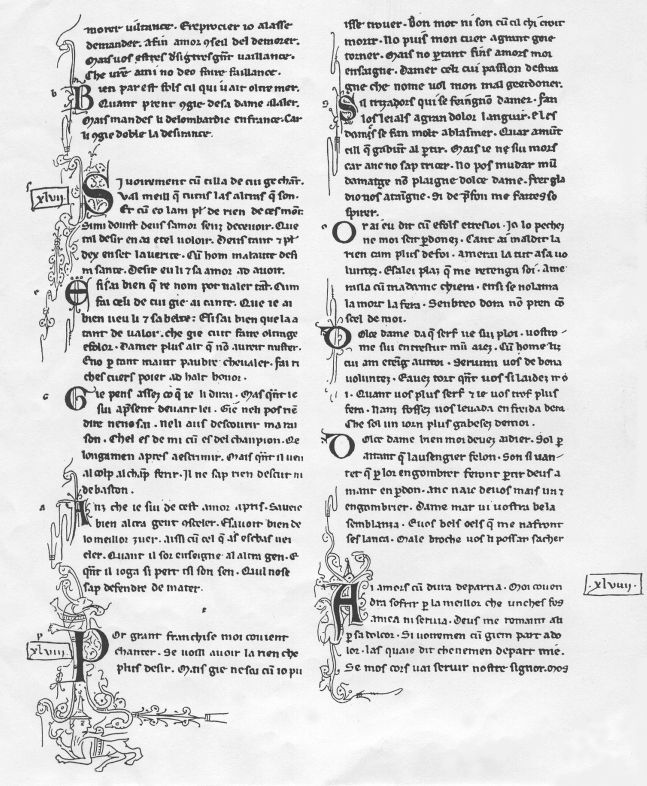 morer uiltance. Ereprocier io alasse
demander. afin amor 9seil del demorer.
Mais uos estres
Che ami no deo faire faillance.
b
Buen par est fols cil qui uait oltre mer.
Quant prent 9gie desa dame alaler.
Mais mandes li delombardie enfrance. Car
li 9gie doble la desirance.
s
xlvii
Si uoirement cū cilla de cui ge chāt.
Val meill q̄ tutas las altras q̄ son.
Et cū eo lam plꝰ de rien de cest mōt.
Simi doinst deus samor senz deceuoir. Que
tal desir en ai etel uoloir. Deus tant plꝰ
dex enset lauerite. Cū hom malaute desi
m sante. Desir eu li samor ad auoir.
e
E sisai bien q̄ re nom pot ualer tāt. Cum
fai celi de cui gie ai cante. Que ie ai
bien ueu li sa belte: Elisai bien quela a
tant de ualor. che gie cuit faire oltrage
esfolor. Damer plus alt q̄ nō auroit
Eno ꝑ tant maint paubre cheualer. fai ri
ches cuers poier ad halt honor.
G
Gie pens assez co q̄ ie li dirai. Mas qn̄t ie
sui apsent deuant lei. Gie neli pos nē
dire nenosai. neli aus descourir ma rai
son. Chel es de mi cū es del chanpion. Qe
longamen apres aescrimir. Mais qn̄t il uen
al colp al chāp ferir. Il ne sap rien descut ni
de baston.
a
Anz che ie fui de cest amor apris. Sauoie
bien altra gent Esauoit bien de
lo meillor cuer. aissi cū cel q̄ as eschas uei
cler. Quant il sor enseigne al altra gen. E
qn̄t il ioga si pert tsi son sen. Quil nose
sap defendre de mater.
p
xlviii
Por grant franchise moi couient
chanter. Se uoill auoir la rien che
plus desir. Mais gie nesai cū io pu
isse trouer. Bon mot ni son cū cil chi crit
morir. No puis mon cuer agrant goie
torner. Mais no ꝑtant fins amors moi
enseigne. Damer celi cui passion destrai
gne che nome uol mon mal geerdoner.
s
Sil triadors qui se feingnū damer. Fan
los leials agran dolor languir. e les
domps se fan molt ablasmer. Quar amūt
cill q̄ gabūt al ꝑtir. Mais ie ne sui mors
car anc no sap tricer. No pos mudar mil
damatge nō plaigne dolce dame. Frer gla
dio nos ataigne. Si de me faites so
spirer.
o
Or ai eu dit cū efols etresloi. Jo lo pechez
ne moi seit ꝑdonez. Cant ai maldit la
rien cum plus defoi. amerai la tut asa uo
luntez. Esalei plai q̄ me retengn soi. Ame
mila cū madame chiera. ensi se nolama
la mort la fera. Senbreo dora nō pren cō
seel de moi.
D
Dolce dame da q̄ serf ue sui ploi. uostro
me sui entrestut mū auez. Cū home tuz
cui am autroi. Seruirai uos de bona
voluntez. Eauez tort qn̄t uos si laidez m o
i. Quant uos plus serf ie uos trof plus
fera. Nam fossez uos leuada en freida bera
Che sol un iorn plus gabesez demoi.
D
Dolce dame bien moi deuez aidier. Sol ꝑ
aitant q̄ lausengier felon. Son si uan
tet q̄ ꝑ lor engombrer feront ꝑtir deus a
mant en ꝑdon. anc naic deuos mais un
engombrier. Dame mar ui uostra bela
semblanza. Euos bels oels q̄ me nafront
ses lanca. Male broche uos li possaz sacher
xlviiii
Ai amors cū dura departia. Moi couen
dra sofrir ꝑ la meillor che unches fos
amea ni seruia. Deus me remaint ali
ꝑ sa dolcor. Si uoiremen cū giem part ado
lor. las quaie dit chenemen depart mie.
Se mos cors uai seruir nostre signor. mos